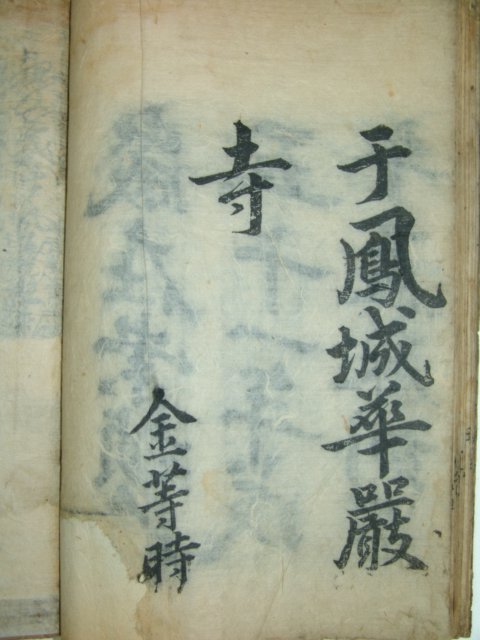 于鳳城華嚴
寺
金等時